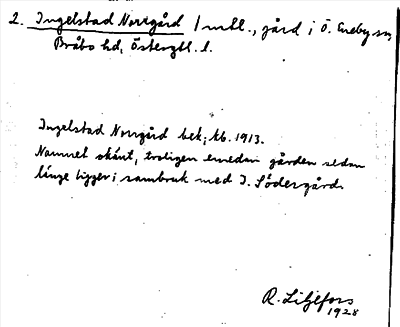 2. Ingelstad Norrgård 1 mtl., gård i Ö. Eneby sn,
Bråbo hd, Östergtl. l.
Ingelstad Norrgård bek. i kb. 1913.
Namnet okänt, troligen emedan gården sedan
länge ligger i sambruk med I. Södergård.
R. Liljefors
1928